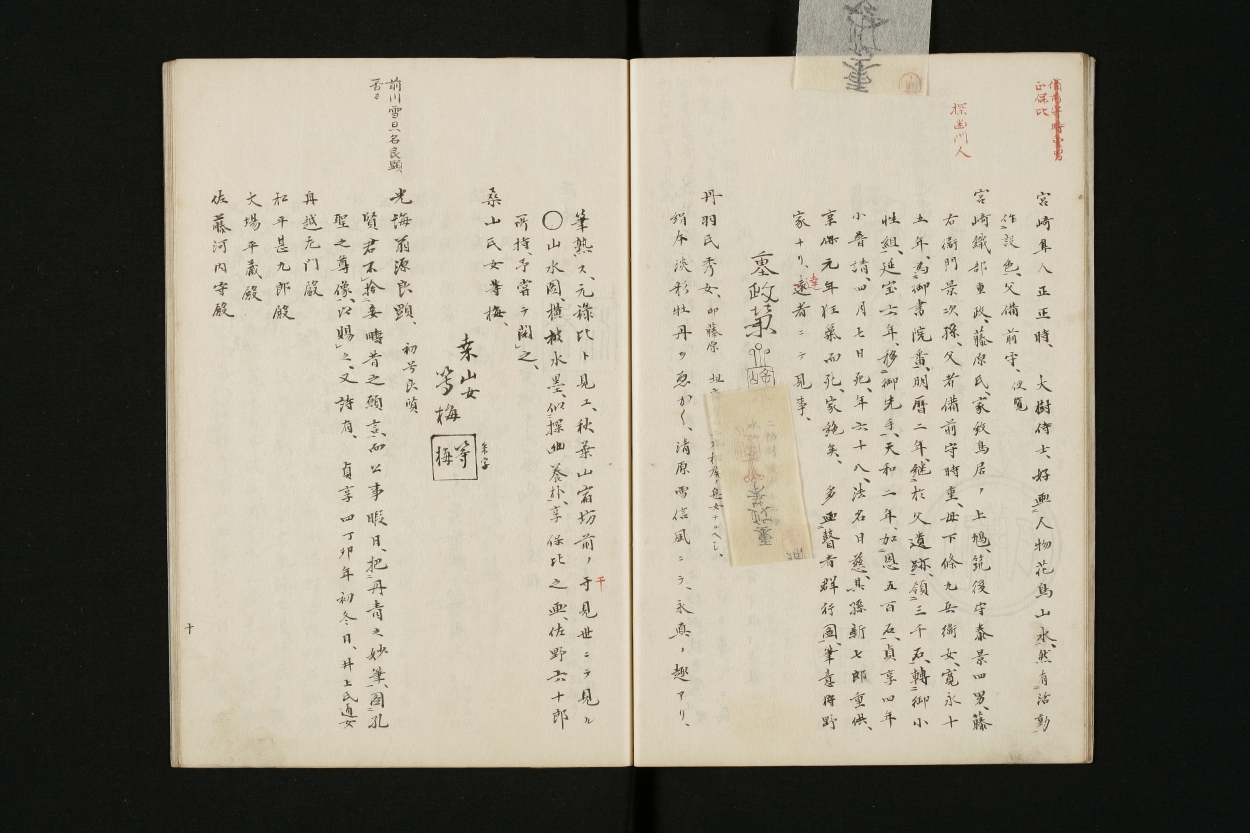 正保比
探幽門人
宮崎隼人正正時、大樹侍士、好画人物花鳥山水、然有活動
作設色、父備前守、
宮崎鐵部重政、藤原氏、家紋鳥居ノ上鳩、筑後守泰景四男、藤
右衛門景次孫、父者備前守時重、母下條九兵衛女、寛永十
五年、為御書院番、明暦二年、継於父遺跡、領三千石、轉御小
性組、延宝六年、移御先手、天和二年、加恩五百石、貞享四年
小普請、四月七日死、年六十八、法名日慈、其孫新七郎重供、
享保元年狂氣而死、家絶矣、多画瞽者群行図、筆意狩野
家ナリ、遠者ニテ見事、
達
墓政業
丹羽氏秀女、印藤原
絹本淡彩牡丹ヲ画かく、清原雪信風ニテ、永真ノ趣アリ、
筆熟ス、元禄比ト見エ、秋葉山宿坊前ノ于見世ニテ見ル
干
〇山水図、横被水墨、似探幽養朴、享保比之画、佐野六十郎
所持、予嘗テ閲之、
桑山氏女等梅、
桑山女
等梅
等梅
朱字
前川雪旦名良顕
光海翁源良顕、初号良質
賢君不捨妾疇昔之願言、而公事暇日、把丹青之妙筆、図孔
聖之尊像、以賜之、又詩有、貞享四丁卯年初冬日、井上氏通女
舟越左門殿
松平甚九郎殿
大場平蔵殿
佐藤河内守殿
十